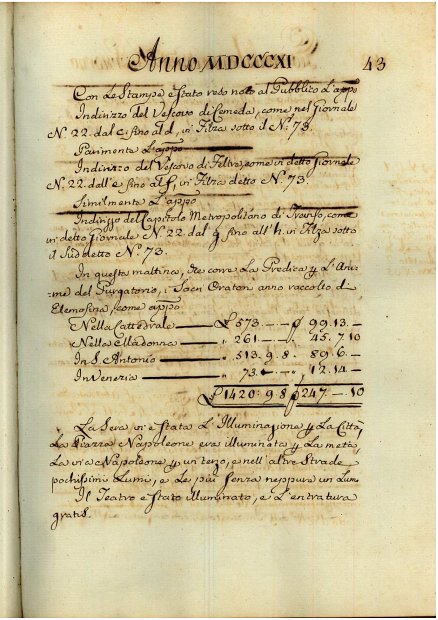 Anno MDCCCXI 43
Con Le Stampe è stato reso noto al Pubblico L'appo
Indirizzo del Vescovo di Ceneda, come nel Giornale
N. 22. dal c. fino al d, in Filza sotto il N.º 73.
Parimente L'appo
Indirizzo del Vescovo di Feltre, come in detto Giornale
N. 22. dall'e fino al f, in Filza detto N.º 73.
Similmente L'appo
Indirizzo del Capitolo Metropolitano di Treviso, come
in detto Giornale N. 22 dal g fino all'h. in Filza sotto
il Suddetto N.º 73.
In questa mattina, che corre La Predica p L'Ani-
me del Purgatorio, i Sacri Oratori anno raccolto di
Elemosina, come appo
Nella Cattedrale £ 573. — 99.13.—
Nella Madonna " 261. — " 45.7.10
In S. Antonio " 513.9.8. 89.6.—
In Venezia " 73. — " 12.14—
£ 1420:9.8 247.—.10
La Sera vi è stata L'Illuminazione p La Città
La Piazza Napoleone era illuminata p La metà,
La via Napoleone p un terzo, e nell'altre Strade
pochissimi Lumi, e Le più senza neppure un Lume
Il Teatro è stato illuminato, e L'entratura
gratis.